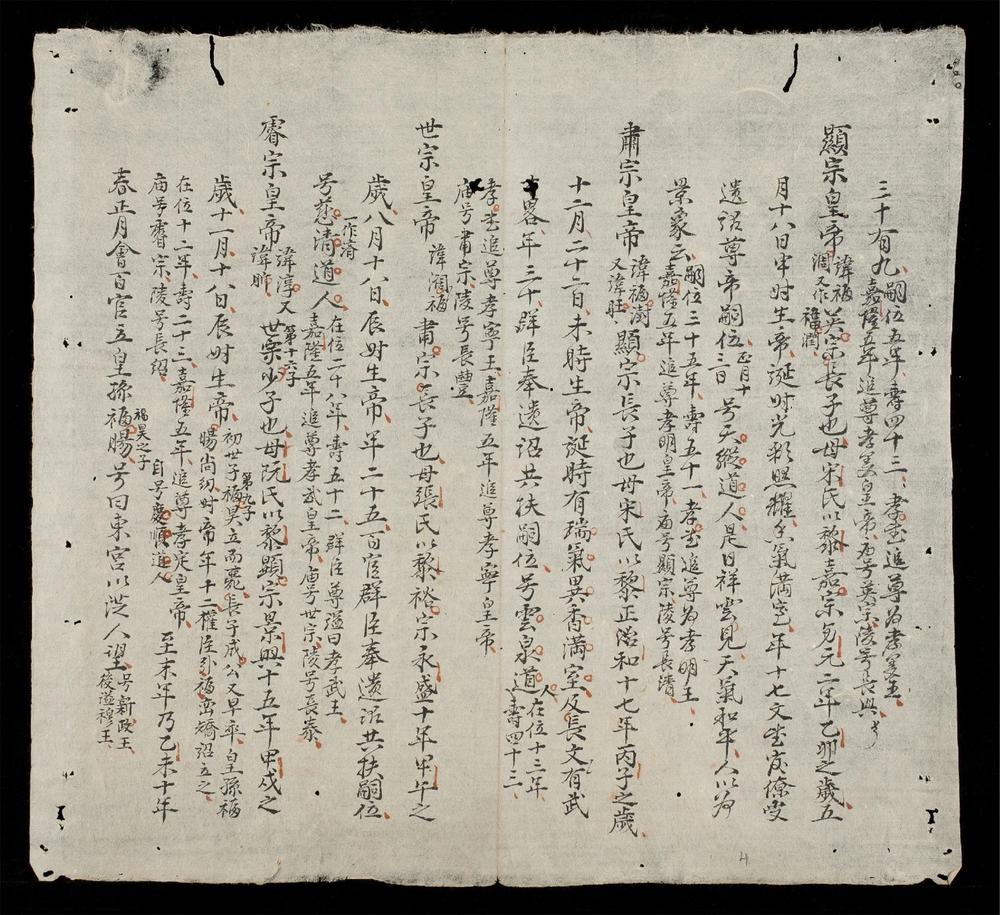 三十有九嗣位五年壽四十三孝武追尊為孝義王
嘉隆五年追尊孝義皇帝庙号英宗陵号長興
顯宗皇帝諱福淍又作福潤英宗長子也母宋氏以黎嘉宗
元二年乙卯之歲五
月十八日牢时生帝誕时光彩照耀香氣满室年十七文武
僚受
遺詔尊帝嗣位正月十三日号天縱道人是日祥雲見天氣和平人以为
景象云嗣位三十五年壽五十一孝武追尊为孝明王
嘉隆五年追尊孝明皇帝庙号顯宗陵号長清
肅宗皇帝諱福澍又諱旺顯宗長子也母宋氏以黎正治和十七年丙子之歲
十二月二十二日未時生帝誕時有瑞氣異香满室及長文有武
畧年三十群臣奉遺詔共扶嗣位号雲泉道人在位十三年壽四十三
孝武追尊孝寧王嘉隆五年追尊孝寧皇帝
庙号肅宗陵号長豊
世宗皇帝諱濶福肅宗長子也母張氏以黎裕宗永盛十年甲午之
歲八月十八日辰时生帝年二十五百官群臣奉遺詔共扶嗣位
号慈濟道人一作濟在位二十八年壽五十二群臣尊謚曰孝武王
嘉隆五年追尊孝武皇帝庙号世宗陵号長泰
睿宗皇帝諱淳又諱昕世宗第十六子少子也母阮氏以黎顯宗景興十五年甲戌之
歲十一月十八日辰时生帝初世子福昊第九子立而薨長子成公又早卒皇孫福
暘尚幼时帝年十二權臣張福巒矯詔立之
在位十二年壽二十三嘉隆五年追尊孝定皇帝自号慶順道人至末年乃乙未十年
庙号睿宗陵号長紹
春正月會百官立皇孫福暘福昊之子号曰東宮以从人望号新政王
後謚穆王